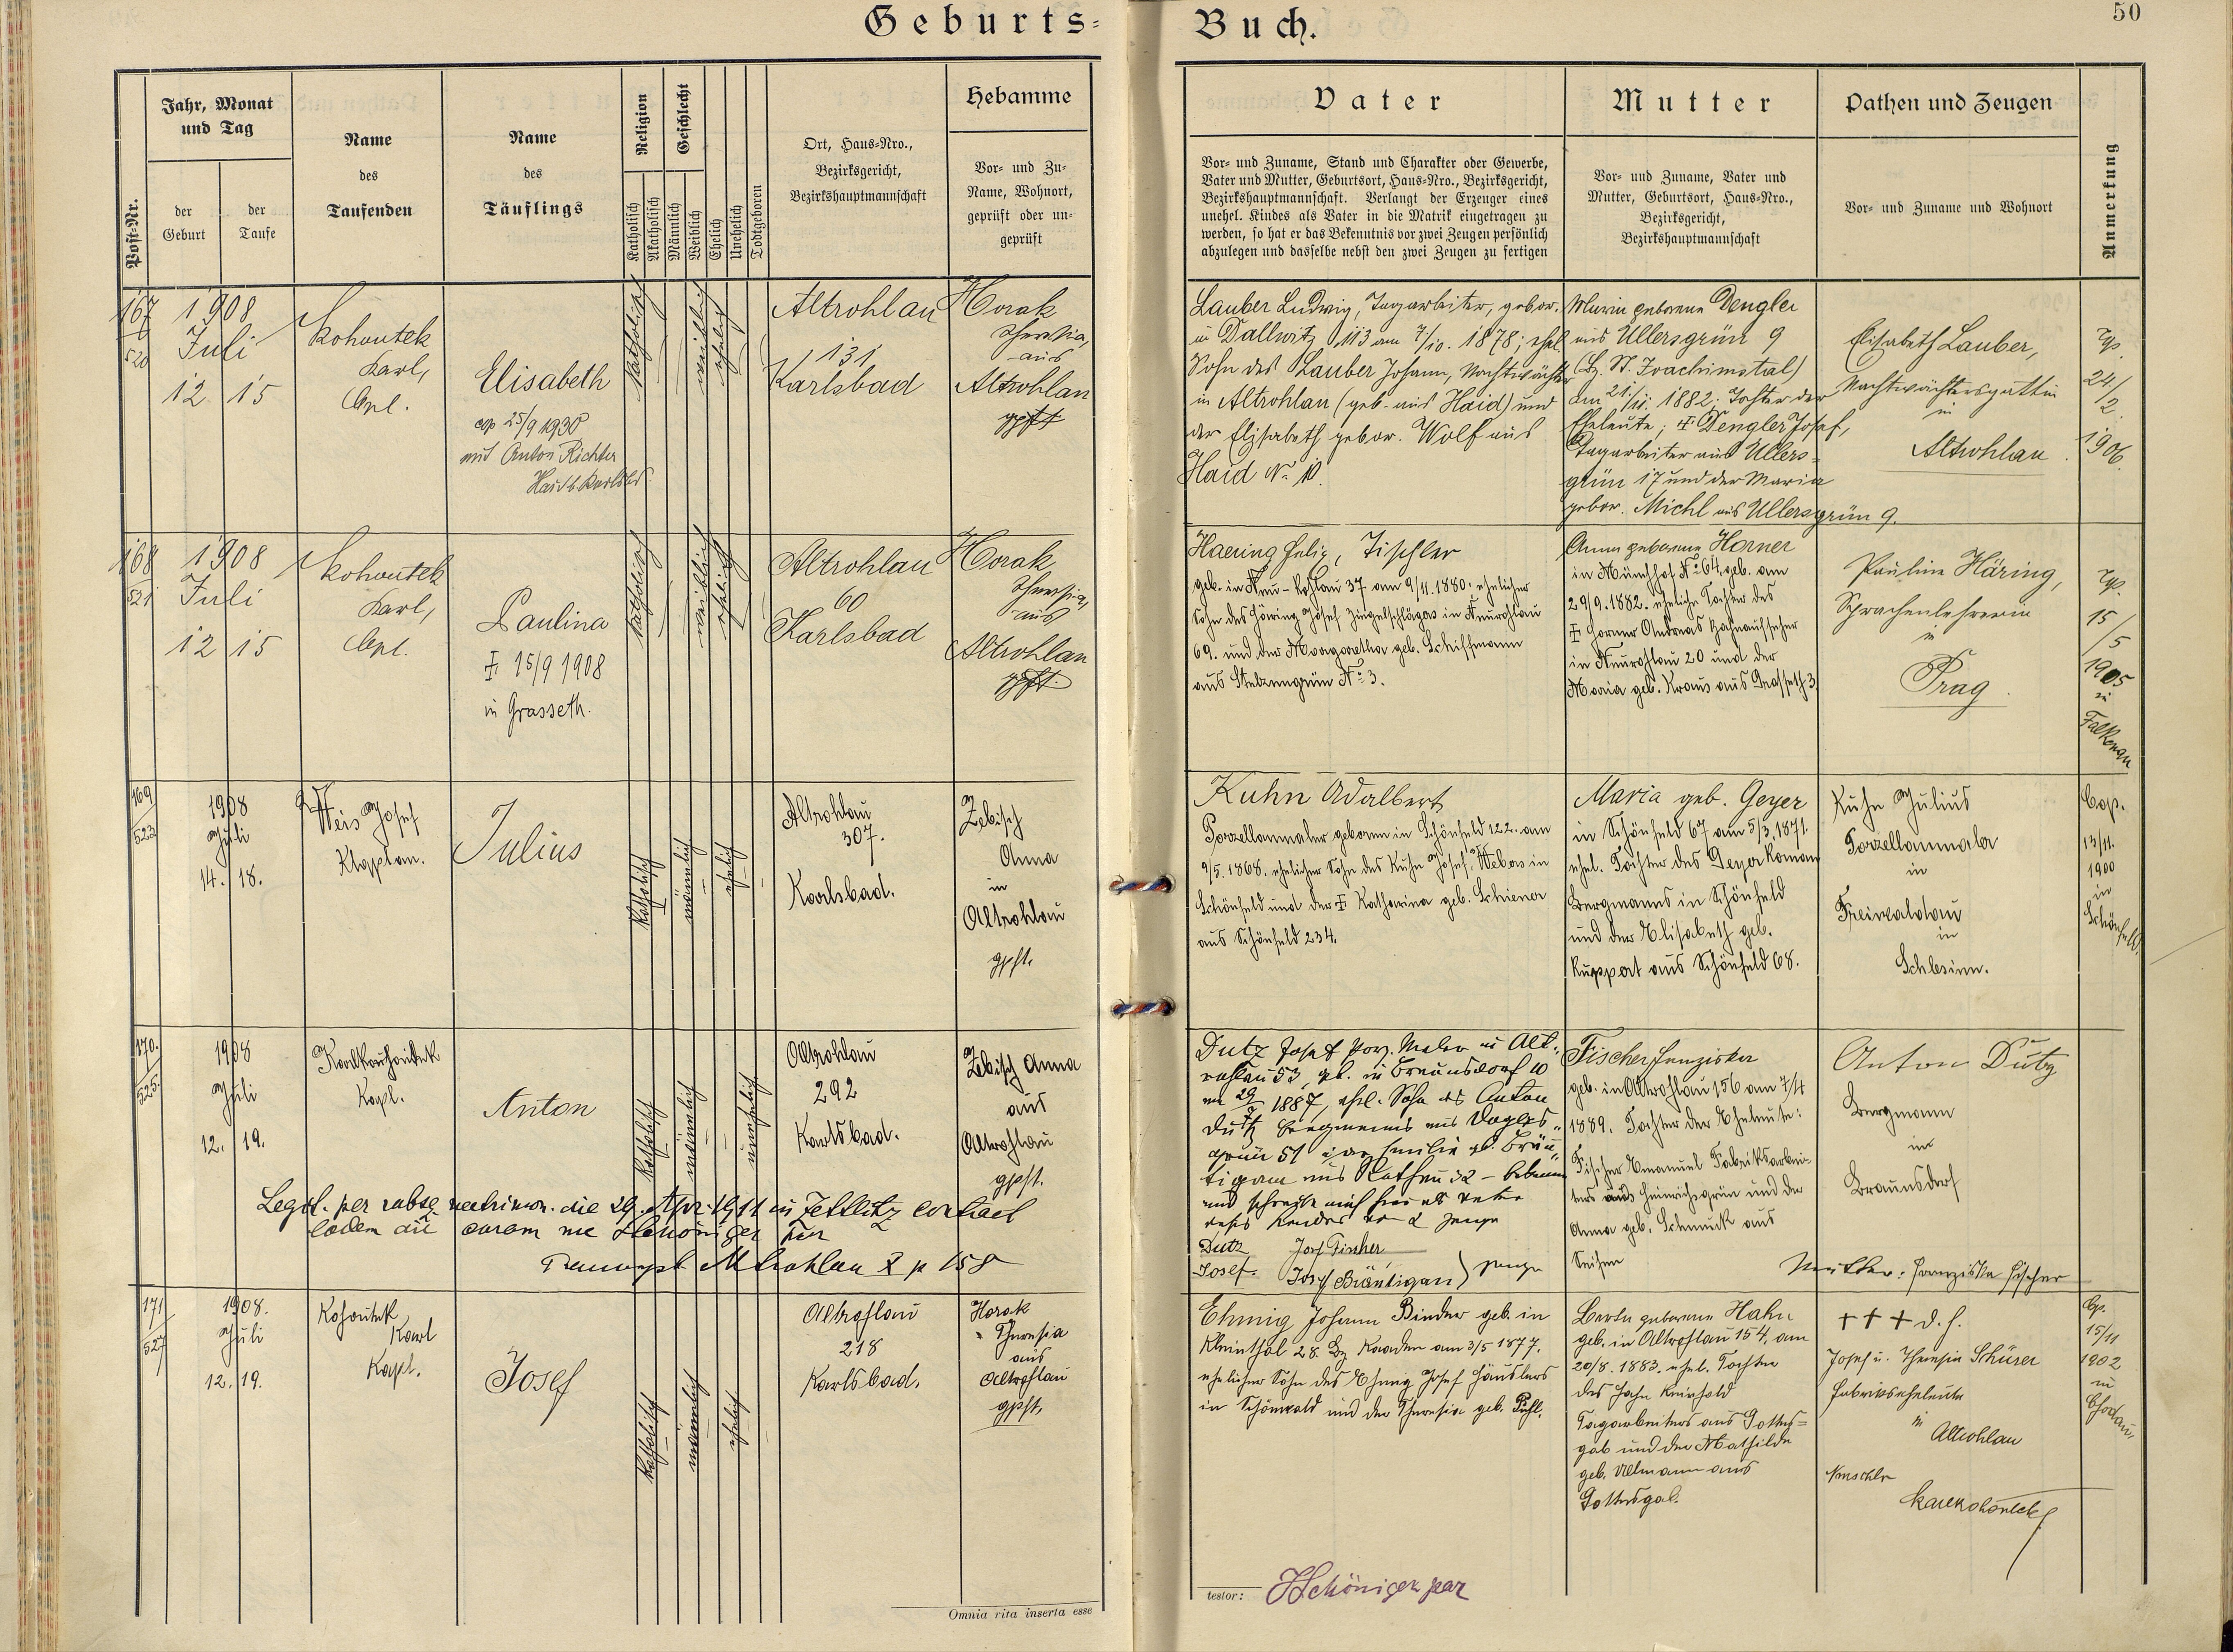 Geburts-
Buch.
50
Post-Nr.
Jahr, Monat
und Tag
der
Geburt
der
Taufe
Name
des
Taufenden
Name
des
Täuflings
Religion
Katholisch
Akatholisch
Geschlecht
Männlich
Weiblich
Ehelich
Unehelich
Todtgeboren
Ort, Haus-Nro.,
Bezirksgericht,
Bezirkshauptmannschaft
Hebamme
Vor- und Zu-
Name, Wohnort,
geprüft oder un-
geprüft
Vater
Vor- und Zuname, Stand und Charakter oder Gewerbe,
Vater und Mutter, Geburtsort, Haus-Nro., Bezirksgericht,
Bezirkshauptmannschaft. Verlangt der Erzeuger eines
unehel. Kindes als Vater in die Matrik eingetragen zu
werden, so hat er das Bekenntnis vor zwei Zeugen persönlich
abzulegen und dasselbe nebst den zwei Zeugen zu fertigen
Mutter
Vor- und Zuname, Vater und
Mutter, Geburtsort, Haus-Nro.,
Bezirksgericht,
Bezirkshauptmannschaft
Pathen und Zeugen
Vor- und Zuname und Wohnort
Anmerkung
167
520
1908
Juli
12 15
Kohoutek
Karl,
Cpl.
Elisabeth
cop 25/9 1930
mit Anton Richter
katholisch
weiblich
ehelich
Altrohlau
131
Karlsbad
Horak
Theresia,
aus
Altrohlau
gpft
Lauber Ludwig, Tagarbeiter, gebor.
in Dallwitz 113 am 7/10. 1878; ehel.
Sohn des Lauber Johann, Nachtwächter
in Altrohlau (geb. aus Haid) und
der Elisabeth gebor. Wolf aus
Haid No 10.
Maria geborene Dengler
aus Ullersgrün 9
(Bz. St. Joachimstal)
am 21./11. 1882. Tochter der
Eheleute; † Dengler Josef,
Tagarbeiter aus Ullers-
grün 17 und der Maria
gebor. Michl aus Ullersgrün 9.
Elisabeth Lauber,
Nachtwächtersgattin
in
Altrohlau
24/
2.
1906.
168
521
1908
Juli
12 15
Kohoutek
Karl,
Cpl.
Paulina
† 15/9 1908
in Grasseth.
katholisch
weiblich
ehelich
Altrohlau
60
Karlsbad
Horak
Theresia,
aus
Altrohlau
gpft.
Haering Felix, Tischler
geb. in Neu-Rohlau 37 am 9/11. 1880; ehelicher
Sohn des Häring Josef Ziegelschlägers in Neurohlau
69. und der Margaretha geb. Schiffmann
aus Stelzengrün No 3.
Anna geborene Horner
in Münchhof No 64, geb. am
29/9. 1882. eheliche Tochter des
† Horner Andreas Bahnaufseher
in Neurohlau 20 und der
Maria geb. Kraus aus Grasseth 3.
Pauline Häring,
Sprachenlehrerin
in
Prag
15
/5
1905
in
Falkenau
169
523
1908
Juli
14. 18.
Weis Josef
Kaplan.
Julius
katholisch
männlich
ehelich
Altrohlau
307.
Karlsbad.
Zebisch
Anna
in
Altrohlau
gpft.
Kuhn Adalbert
Porzellanmaler geboren in Schönfeld 122. am
9/5. 1868. ehelicher Sohn des Kuhn Josef, Webers in
Schönfeld und der † Katharina geb. Schiener
aus Schönfeld 234.
Maria geb. Geyer
in Schönfeld 67 am 5/3. 1871.
ehel. Tochter des Geyer Roman
Bergmanns in Schönfeld
und der Elisabeth geb.
Ruppert aus Schönfeld 68.
Kuhn Julius
Porzellanmaler
in
Freiwaldau
in
Schlesien.
Cop.
13/11.
1900
in
Schönfeld.
170.
525.
1908
Juli
12. 19.
Kapl.
Anton
katholisch
männlich
unehelich
Altrohlau
292
Karlsbad.
Zebisch Anna
aus
Altrohlau
gpft.
Dutz Josef Porz. Maler in Alt-
rohlau 53, geb. in Braunsdorf 10
am 29/7 1887, ehel. Sohn des Anton
Dutz Bergmanns aus Vogels-
grün 51 u. der Emilie geb. Bräu-
tigam aus Rothau 32 - bekenne
Dutz Josf Fischer
Josef. Josef Bräutigam } Zeuge
Fischer Franziska
geb. in Altrohlau 156 am 7/4
1889. Tochter der Eheleute:
Fischer Emanuel Fabriksarbei-
ters aus Heinrichsgrün und der
Anna geb. Schmuck aus
Anton Dutz
Bergmann
in
Braunsdorf
Mutter: Franziska Fischer
171
527
1908.
Juli
12. 19.
Kohoutek
Karl
Kapl.
Josef
katholisch
männlich
ehelich
Altrohlau
218
Karlsbad.
Horak
Theresia
aus
Altrohlau
gpft.
Ehmig Johann Binder geb. in
Kleinthal 28. Bz Kaaden am 3/5 1877.
ehelicher Sohn des Ehmig Josef Häuslers
in Schönwald und der Theresia geb.
Berta geborene Hahn
geb. in Altrohlau 154, am
20/8. 1883. ehel. Tochter
des Hahn Reinhold
Tagarbeiters aus Gottes-
gab und der Mathilde
geb. Ullmann aus
Gottesgab.
+ + + d. h.
Josef u. Theresia Schürer
Fabrikseheleute
in
Altrohlau
Cop.
15/11
1902
in
Chodau
Omnia rita inserta esse
testor: